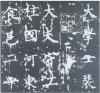 大學士裴
大夫上
柱國河東
食邑二千